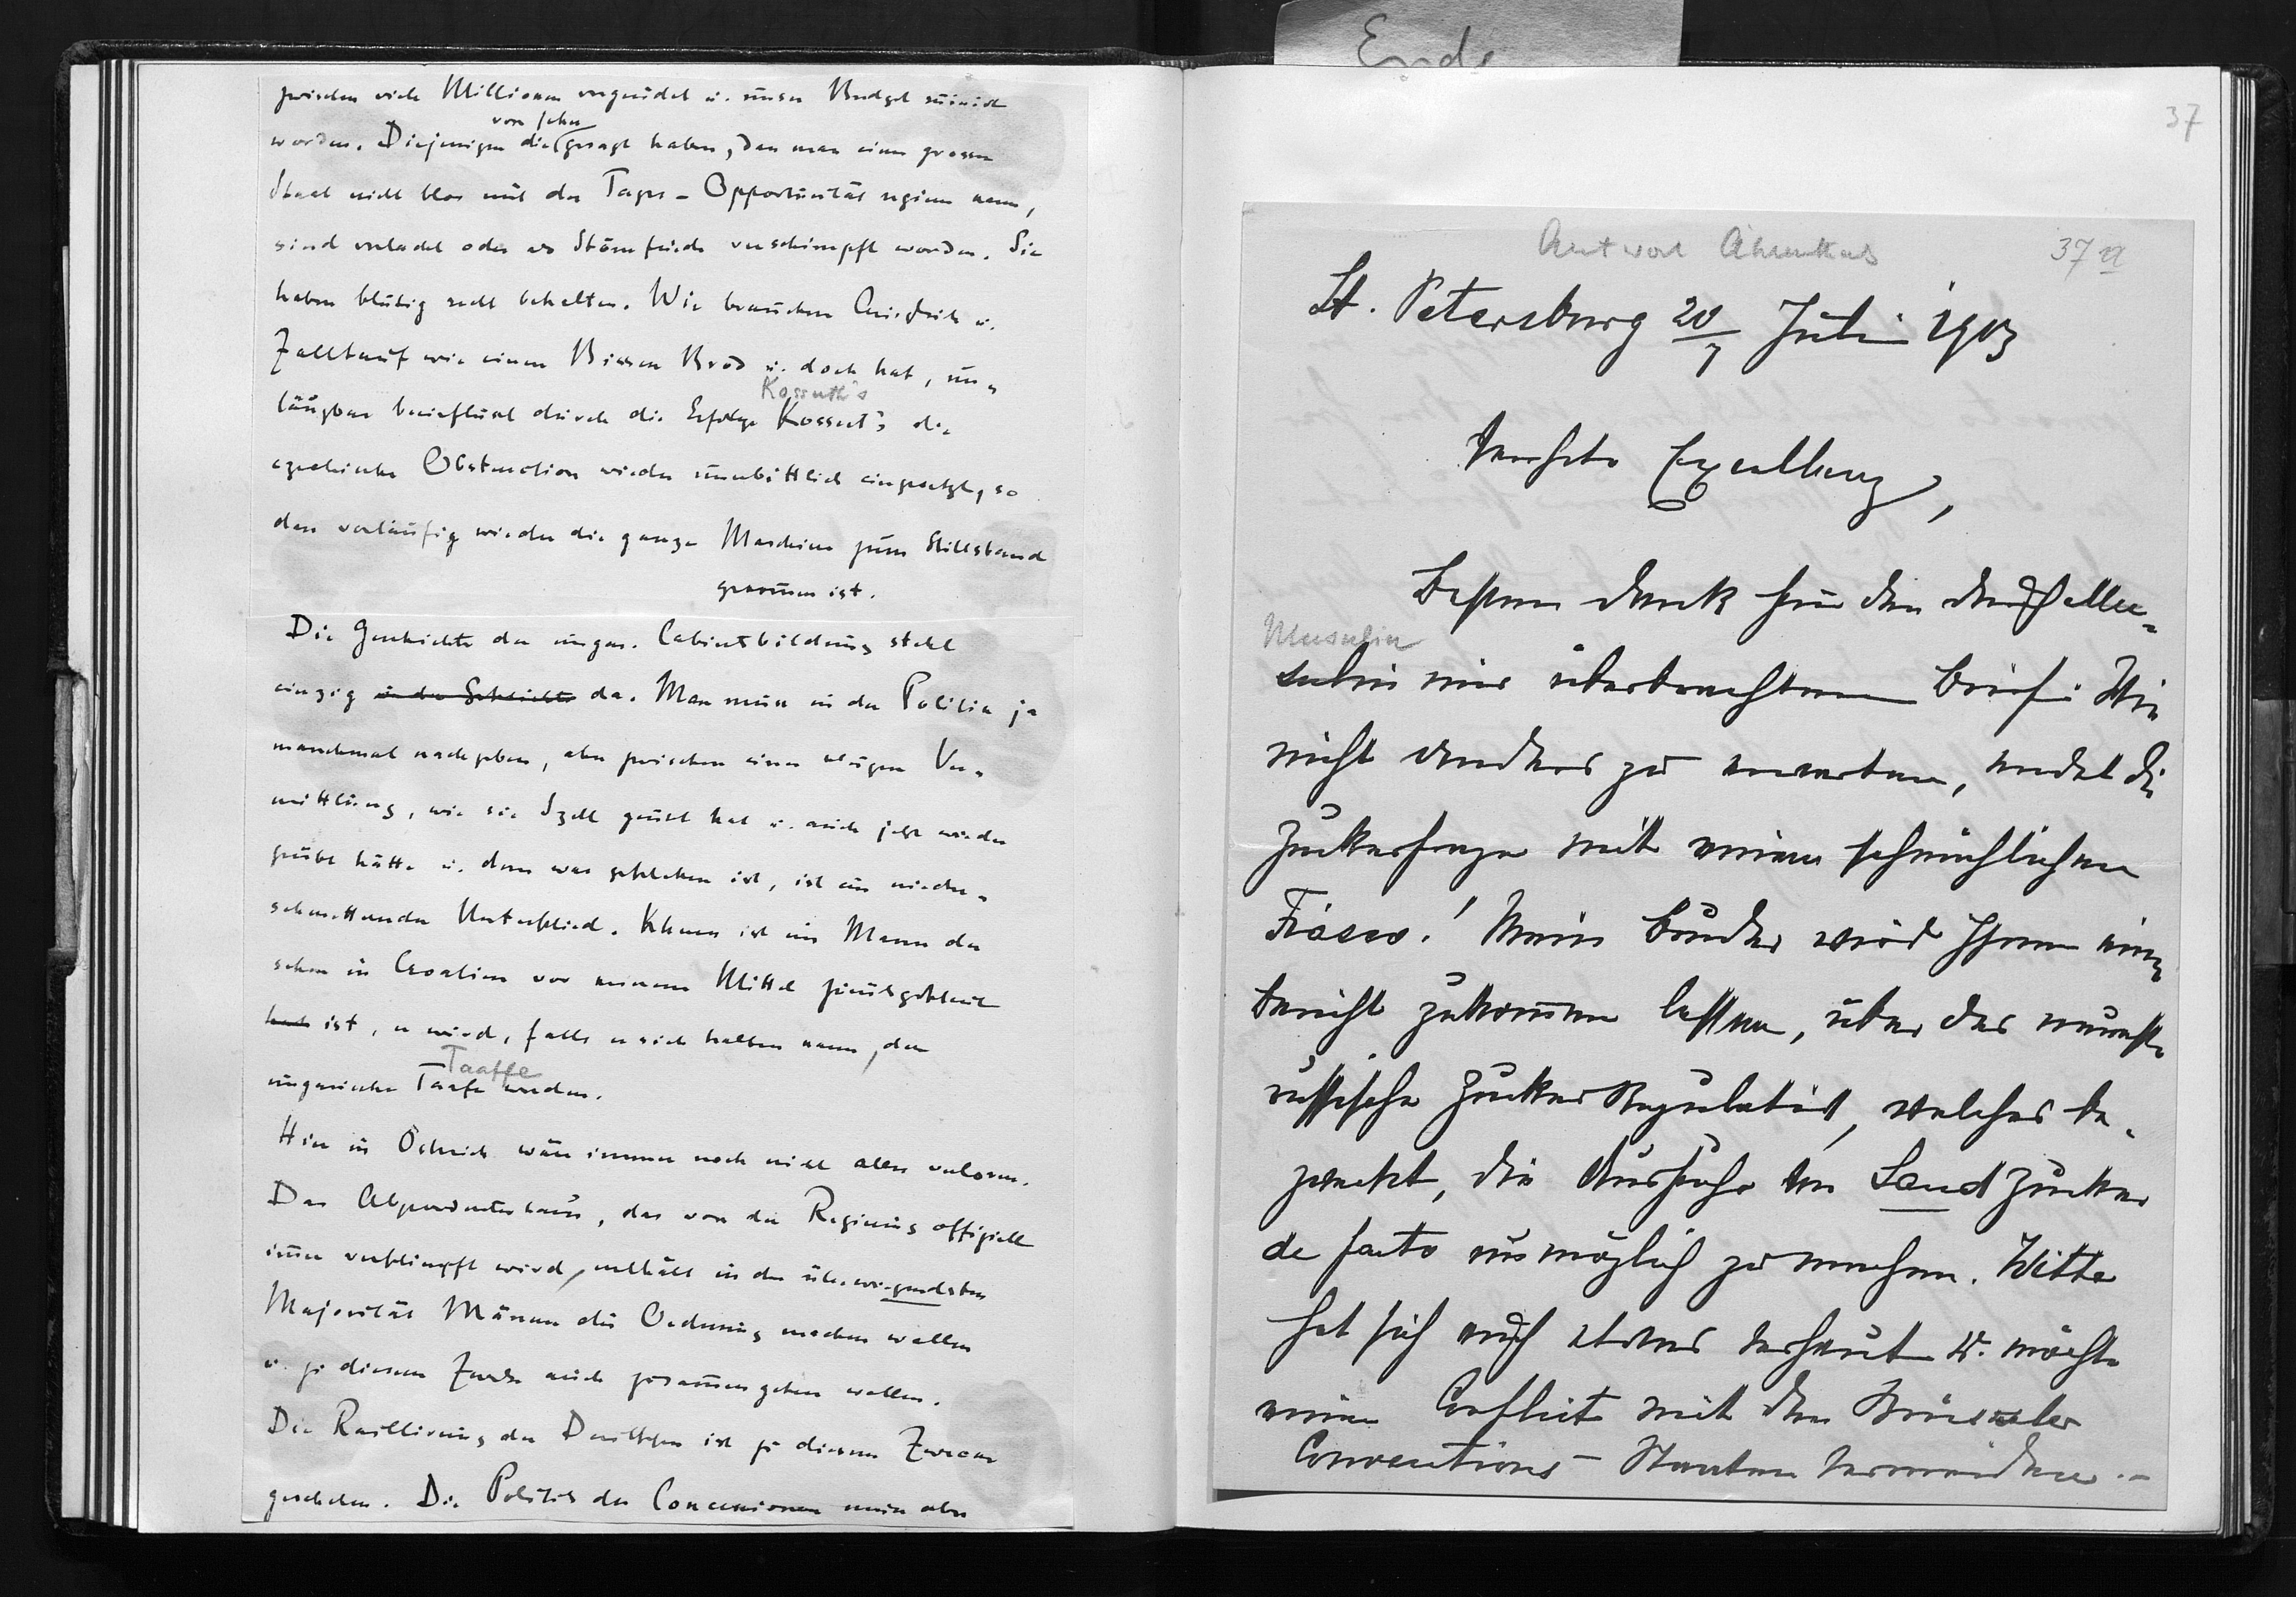 zwischen viele Millionen vergeudet u. unser Budget ruinirt
worden. Diejenigen die
von jeher
gesagt haben, dass man einen grossen
Staat nicht blos mit der Tages-Opportunität regieren kann,
sind verlacht oder als Störenfriede verschimpft worden. Sie
haben blutig recht behalten. Wir brauchen Ausgleich u.
Zolltarif wie einen Bissen Brod u. doch hat, un-
Kossuth's
läugbar beeinflusst durch die Erfolge Kossut's die
czechische Obstruction wieder unerbittlich eingesetzt, so
dass vorläufig wieder die ganze Maschine zum Stillstand
gekommen ist.
Die Geschichte der ungar. Cabinetsbildung steht
einzig in der Geschichte da. Man muss in der Politik ja
manchmal nachgeben, aber zwischen einer klugen Ver-
mittlung, wie sie Szell geübt hat u. auch jetzt wieder
geübt hätte u. dem was geschehen ist, ist ein nieder-
schmetternder Unterschied. Khuen ist ein Mann der
schon in Croatien vor keinem Mittel zurückgescheut
hat ist, er wird, falls er sich halten kann, der
Taaffe
ungarische Taafe werden.
Hier in Östreich wäre immer noch nicht alles verloren.
Das Abgeordnetenhaus, das von der Regierung offiziell
immer verschimpft wird, enthält in der überwiegendsten
Majorität Männer die Ordnung machen wollen
u. zu diesem Zwecke auch zusammengehen wollen.
Die Raillirung der Deutschen ist zu diesem Zwecke
geschehen. Die Politik der Concessionen muss aber
Ende
37
Antwort Ährenthals
37a
St. Petersburg 20/7 Juli 1903
Verehrte Excellenz,
Besten Dank für den durch Mu-
Musulin
sulin mir überbrachten Brief. Wie
nicht anders zu erwarten, endet die
Zuckerfrage mit einem schmählichen
Fiasco! Mein Bruder wird Ihnen einen
Bericht zukommen lassen, über das neueste
russische Zucker Regulativ, welches be-
zweckt, die Ausfuhr von Sandzucker
de facto unmöglich zu machen. Witte
hat sich auch etwas verhaut u. möchte
einen Conflict mit den Brüsseler
Conventions-Staaten vermeiden. –